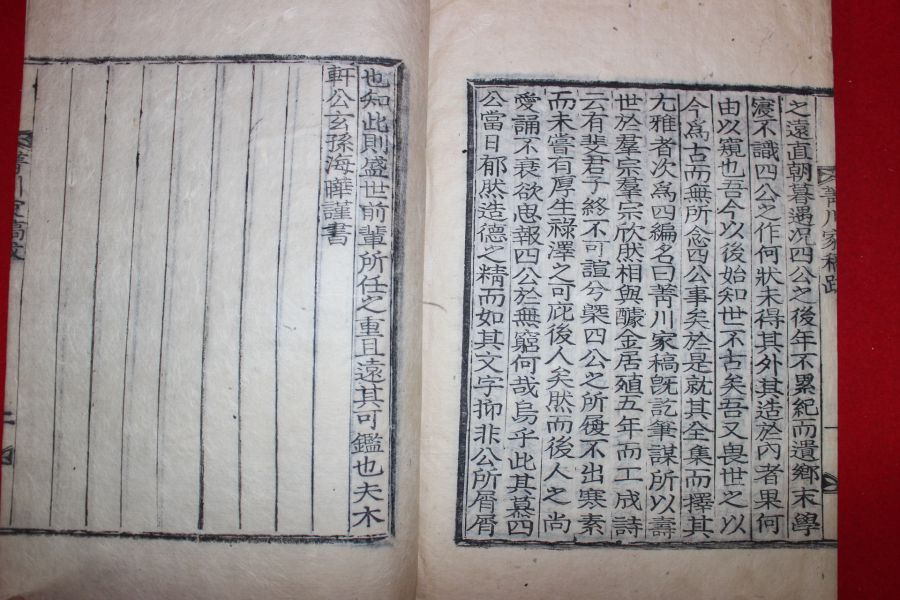 之遠直朝暮遇况四公之後年不累紀而遺鄉末學
寖不識四公之作何狀未得其外其造於內者果何
由以窺也吾今以後始知世不古矣吾又畏世之以
今爲古而無所念四公事矣於是就其全集而擇其
尤雅者次爲四編名曰菁川家稿旣訖筆謀所以壽
世於羣宗羣宗欣然相與醵金居殖五年而工成詩
云有斐君子終不可諠兮槩四公之所履不出寒素
而未嘗有厚生祿澤之可庇後人矣然而後人之尚
愛誦不衰欲思報四公於無窮何哉烏乎此其慕四
公當日郁然造德之精而如其文字抑非公所屑屑
也知此則盛世前輩所任之重且遠其可鑑也夫木
軒公玄孫海曄謹書
菁川家稿跋
一
菁川家稿跋
二